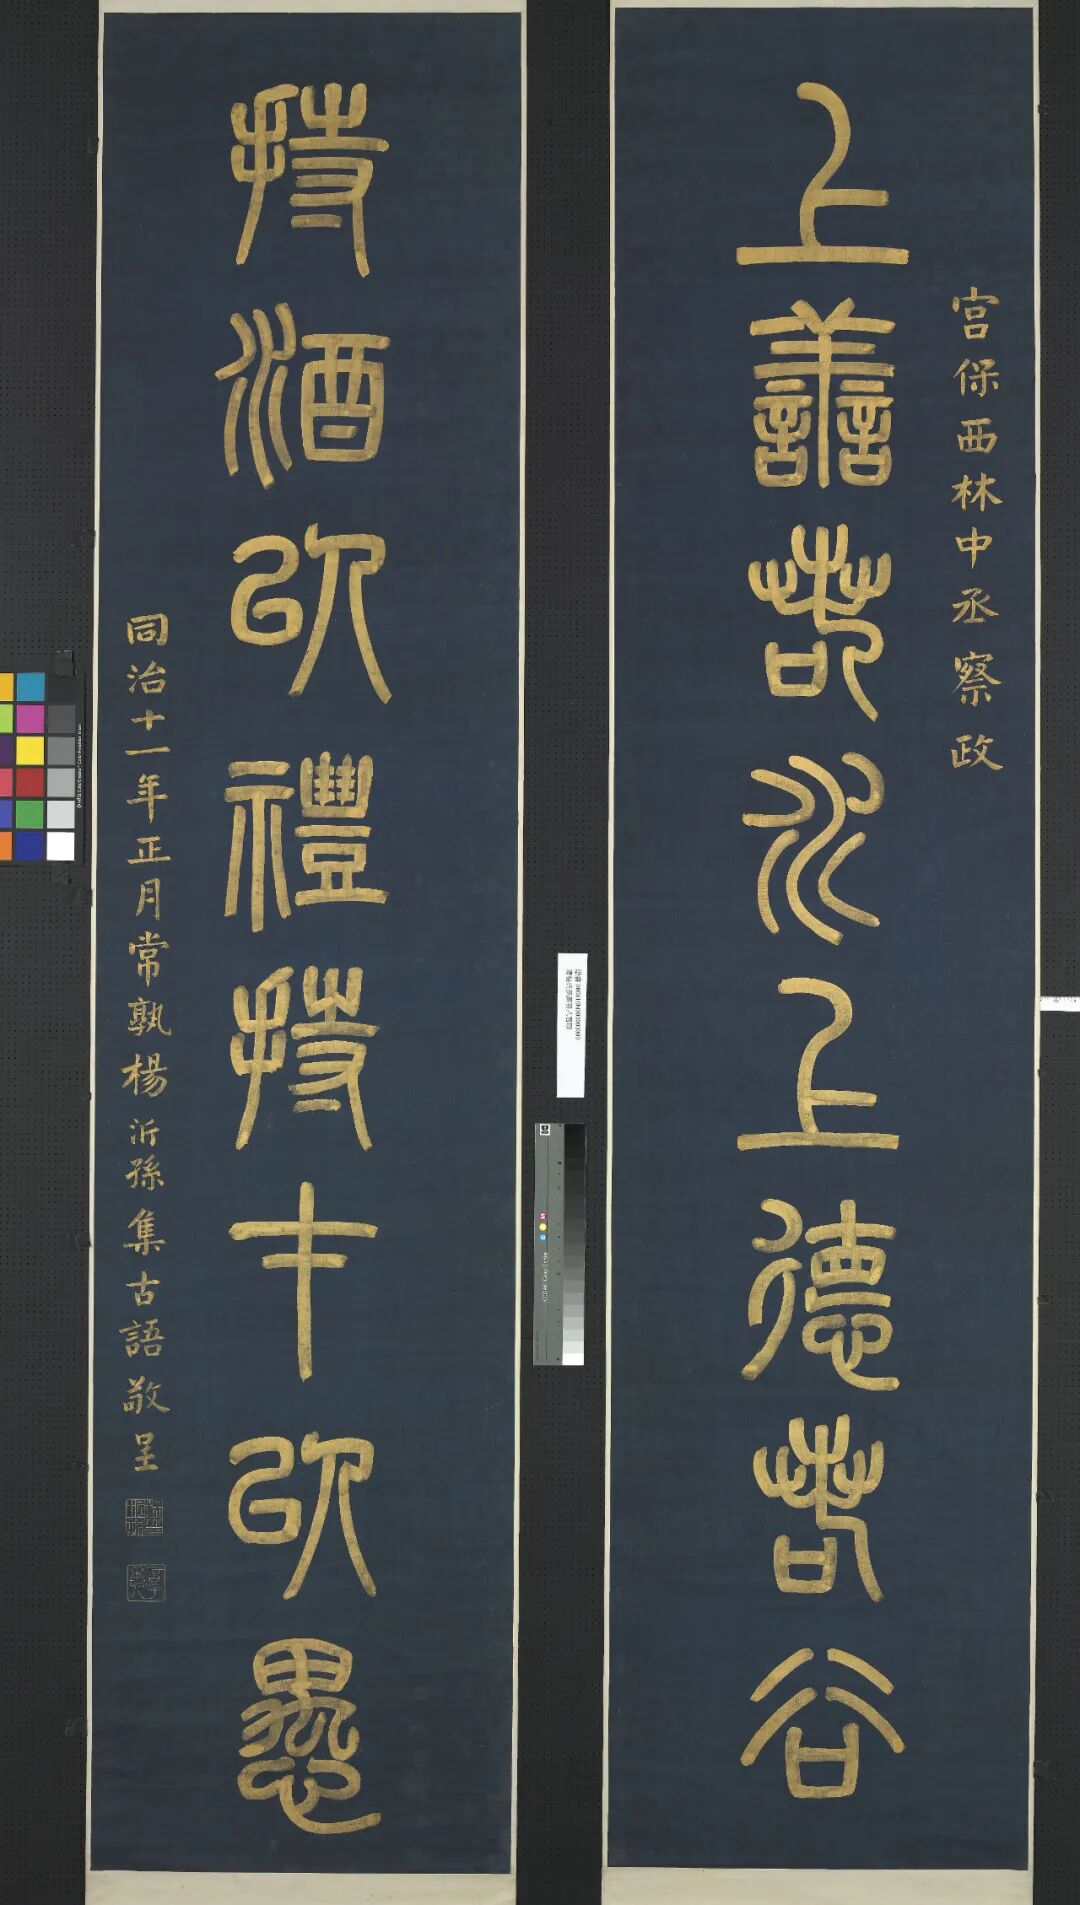 宮保西林中丞察政
上善若水上德若谷
持酒以禮持才以愚
同治十一年正月常孰楊沂孫集古語敬呈